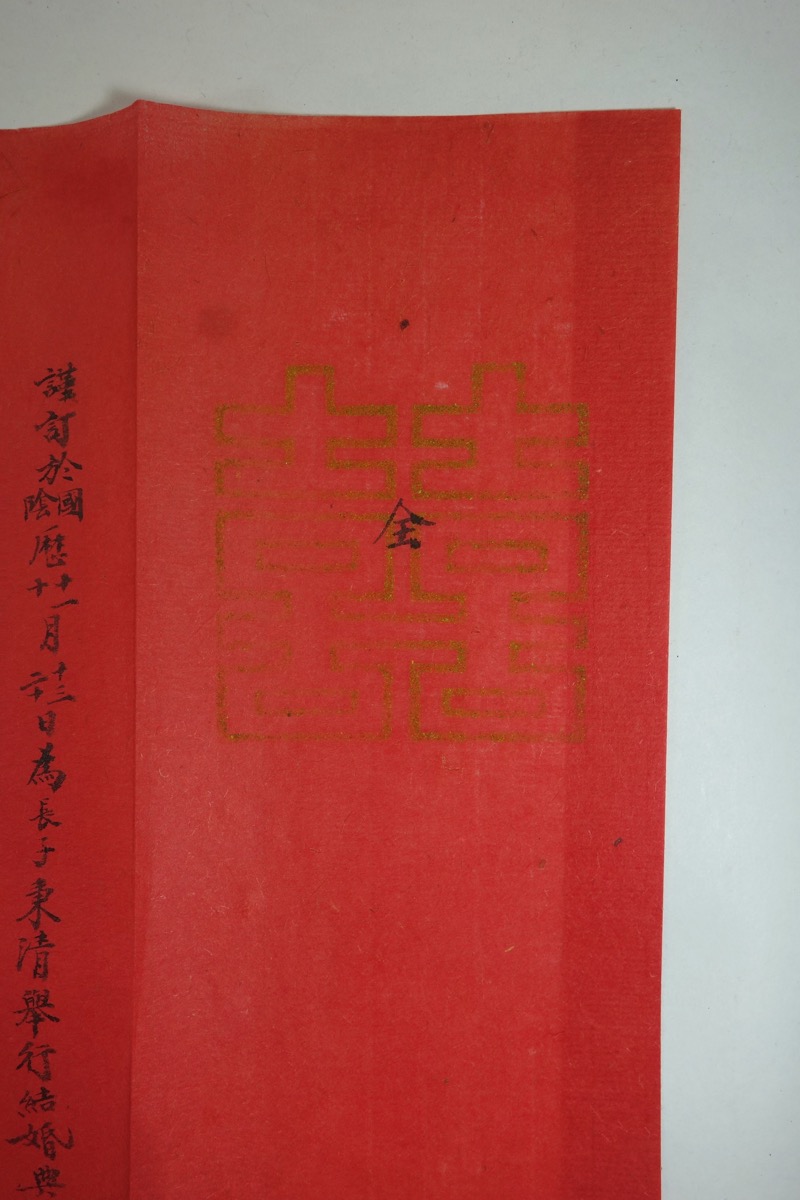 囍
全
謹訂於國陰歷十一十月十三二十日為長子秉清舉行結婚典